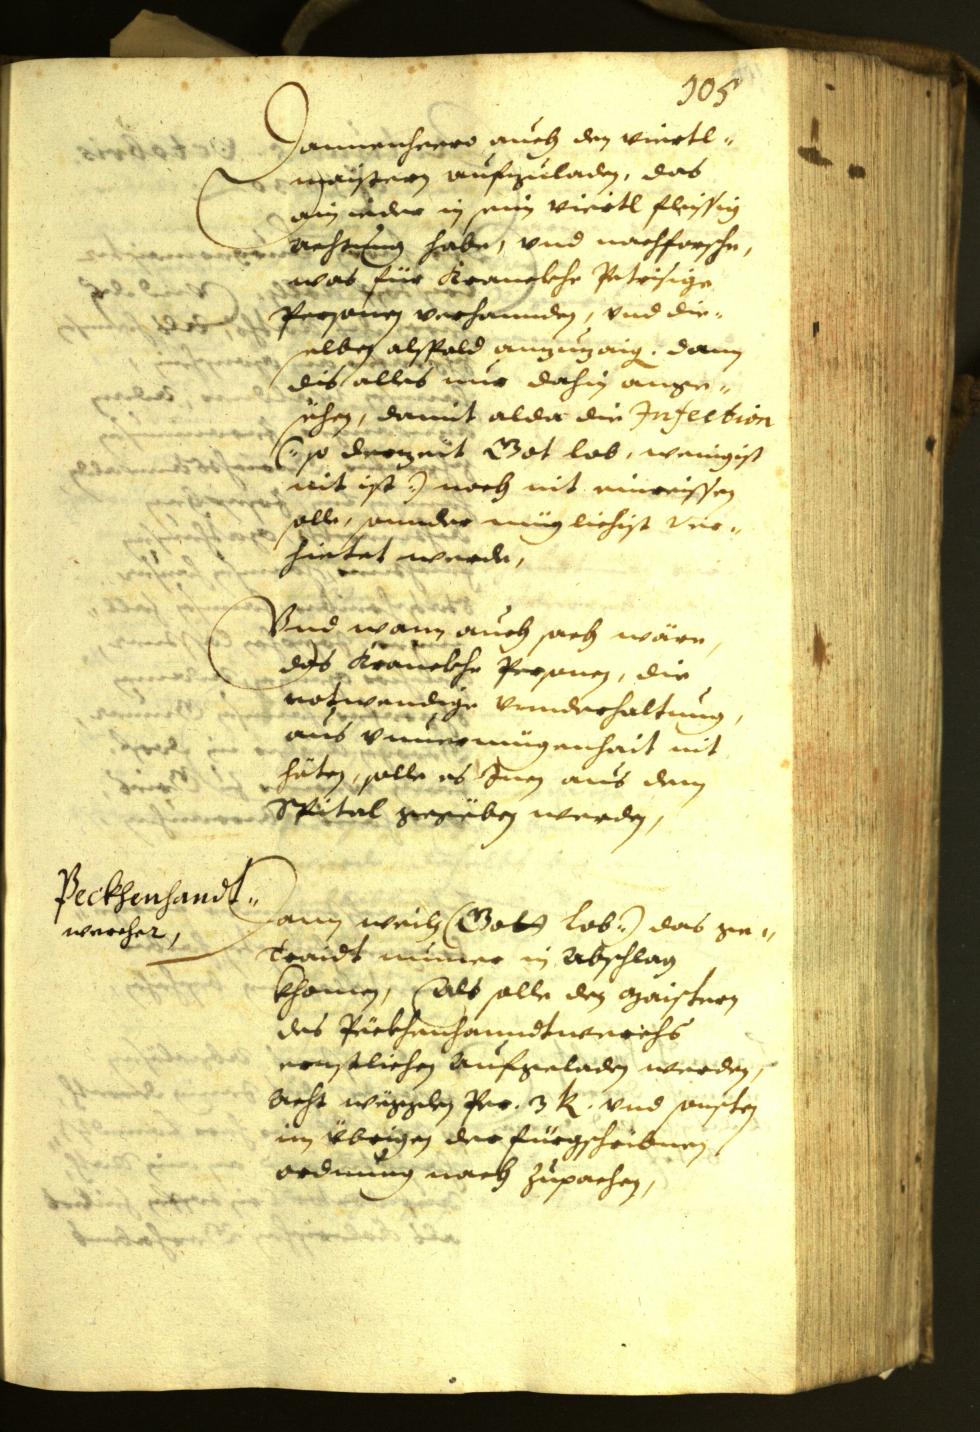 105
Dannenhero auch den Viertl-
maistern aufzuladen, das
ain ieder in sein Viertl fleissig
achtung habe, vnd nachforsche,
was für Kranckhe Petrisige
Personen verhannden, vnd die-
selben alspald anzuzaig. dann
dis alles nur dahin ange-
sehen, damit alda die Infection
(: so derzeit Got lob, wenigist
nit ist :) noch nit einreissen
solle, sonnder müglichist ver-
hietet werde,
Vnd wann auch sach wäre,
das Kranckhe Personen, die
notwendige vnnderhaltung,
aus vnuermügenhait nit
heten, solle es Inen aus dem
Spital gegeben werden,
Peckhenhandt-
wercher,
Dann weil (Got lob:) das ge-
traidt nunner in Abschlag
khomen, Als solle den Maistern
des Peckhenhanndtwerchs
ernstlichen aufgeladen werden,
Acht weggen Per. 3 k. vnd sonsten
im übrigen der fürgschribnen
ordnung nach zupachen,